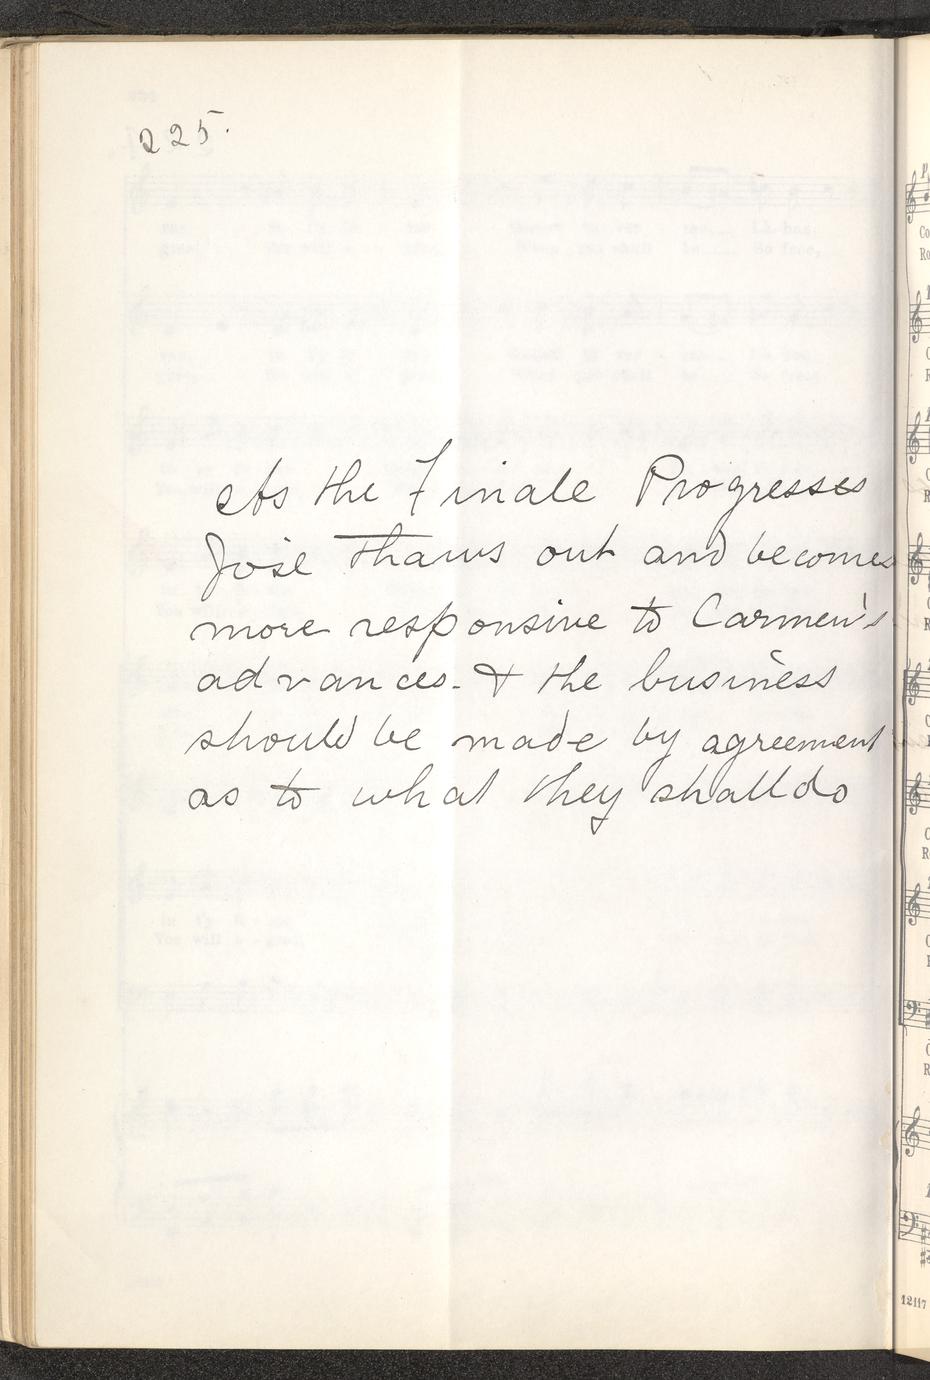 225.
As the Finale Progresses
José Thaws out and becomes
more responsive to Carmen's
advances. & the business
should be made by agreement
as to what they shall do
12117